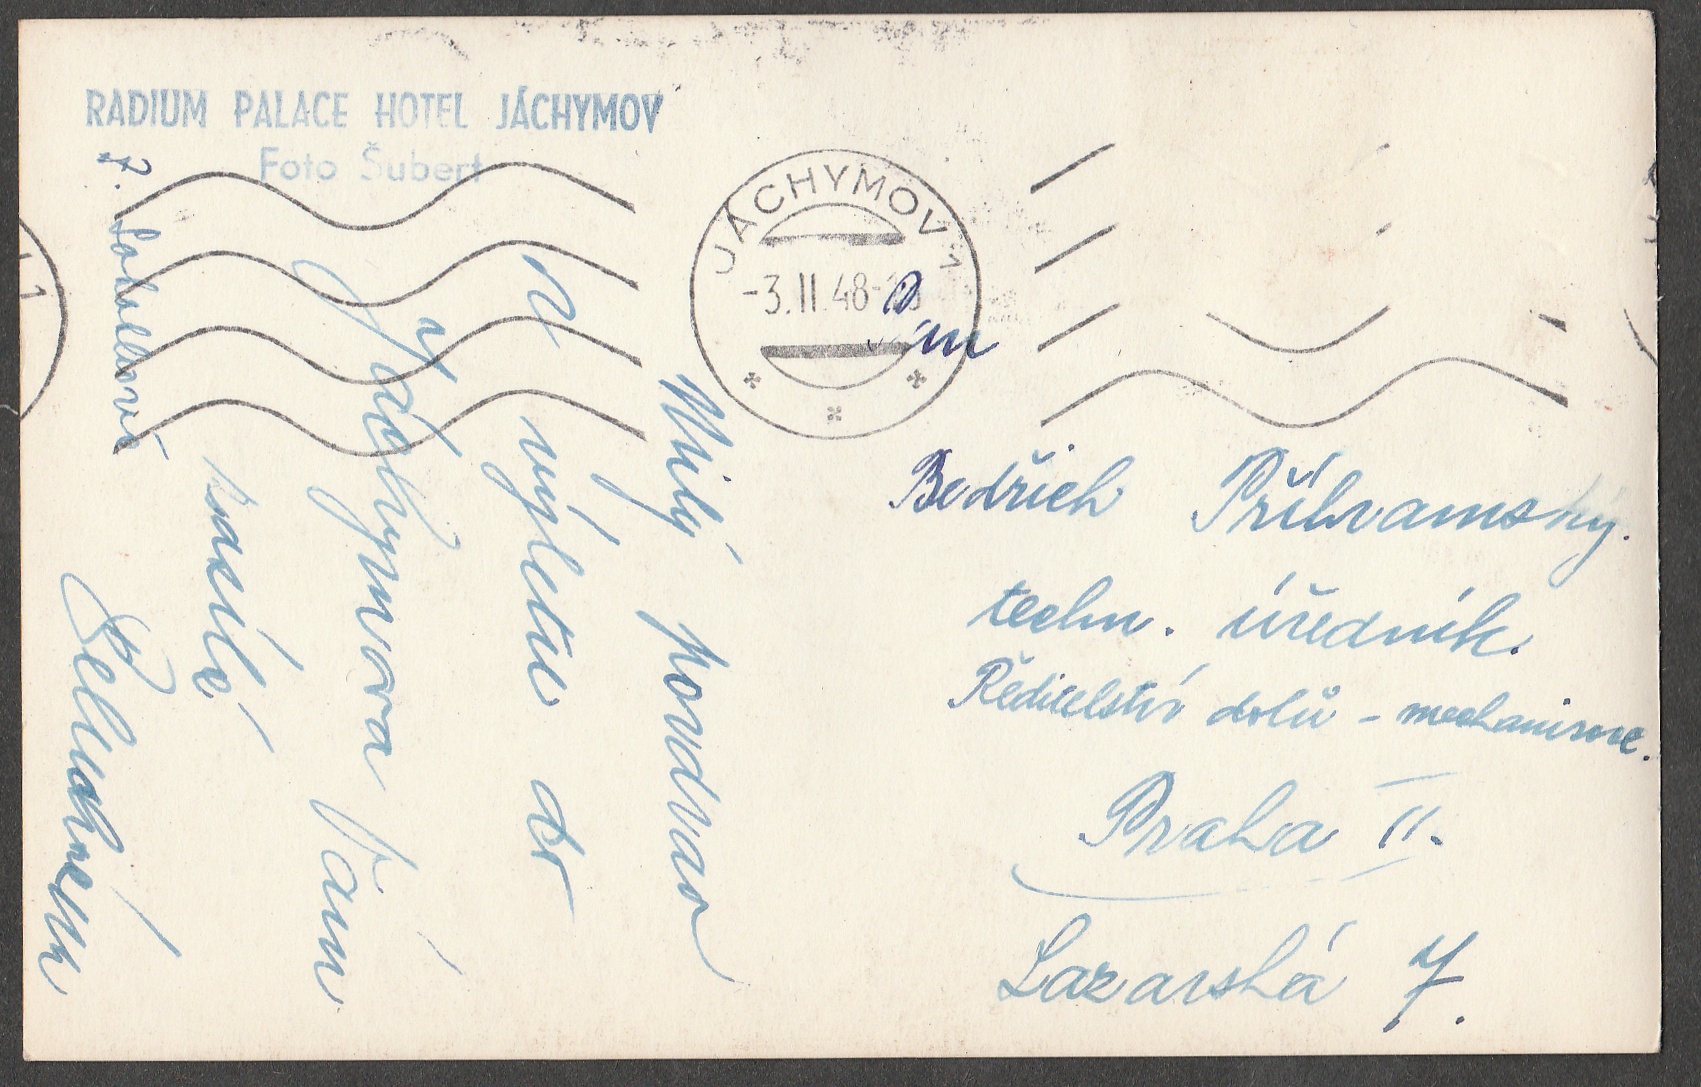 RADIUM PALACE HOTEL JÁCHYMOV
Foto Šubert
JÁCHYMOV 1
-3.II.48-
Milý pozdrav
z výletu do
Jáchymova Vám
zasílá
P.
Pán
Bedřich Příhvamský.
techn. úředník.
Ředitelství dolů - mechanisac.
Praha II.
Lazarská 7.
1